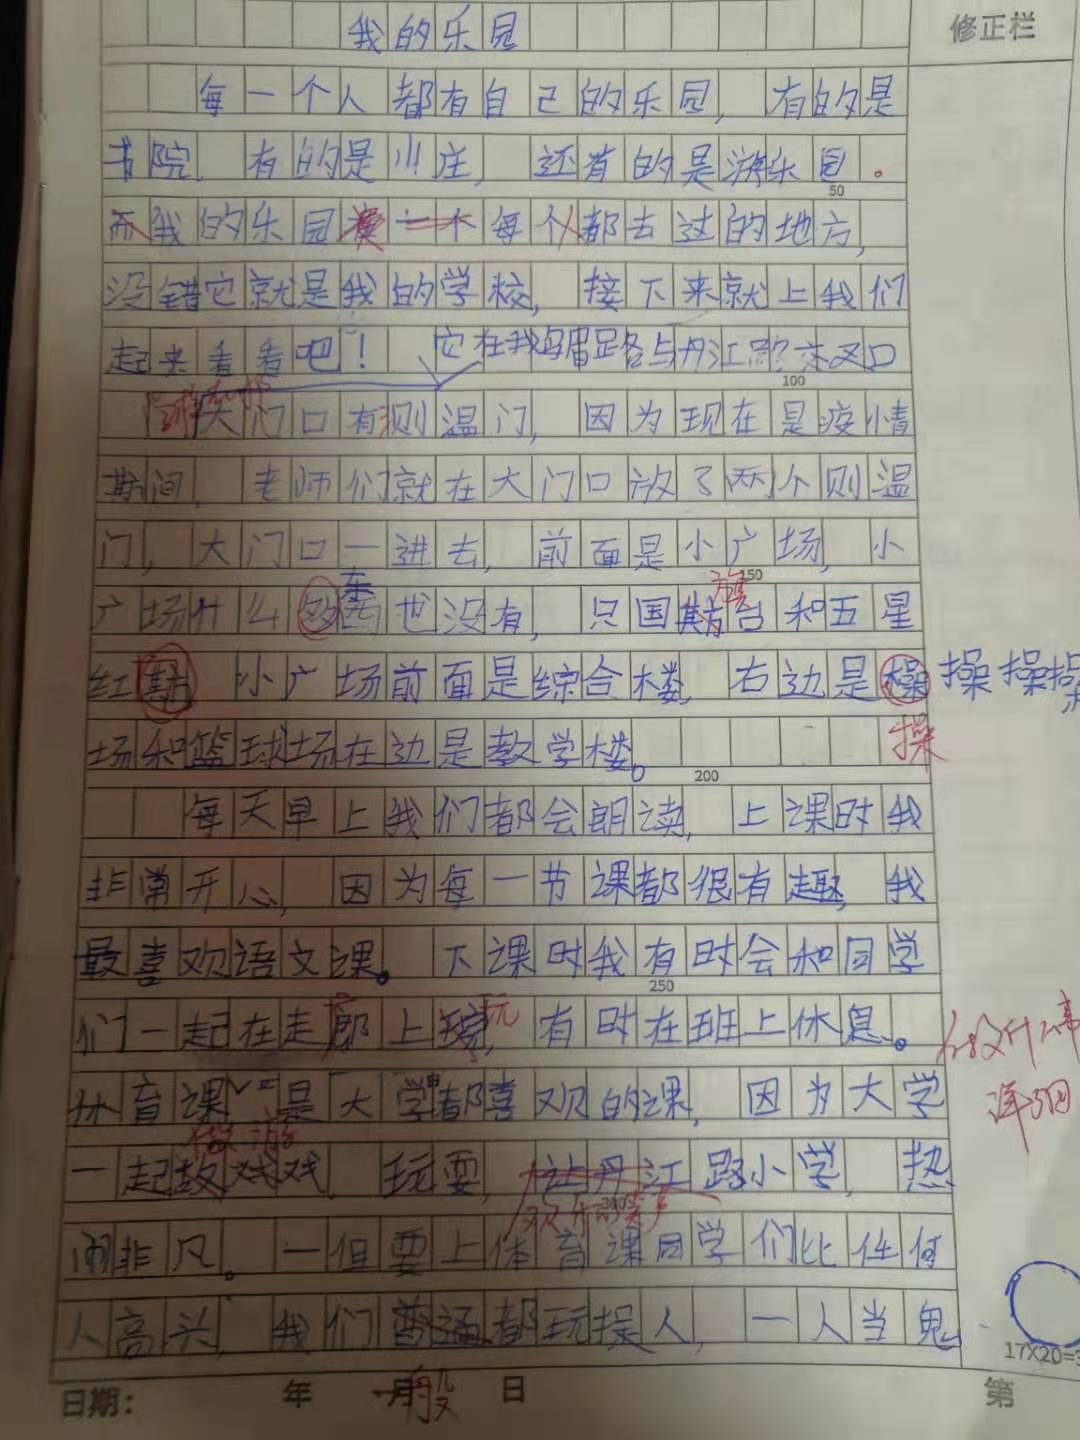 我的乐园
修正栏
每一个人都有自己的乐园，有的是
书院，有的是小庄，还有的是游乐园。
50
而我的乐园是一个每个人都去过的地方，
没错它就是我的学校，接下来就上我们
起来看看吧！它在我马留路与丹江路交叉口
100
大门口有测温门，因为现在是疫情
期间，老师们就在大门口放了两个则温
门，大门口一进去，前面是小广场，小
东
旗
150
广场什么西也没有，只国期台和五星
红 小广场前面是综合楼，右边是操 操操操
场和篮球场在边是教学楼。
操
200
每天早上我们都会朗读，上课时我
非常开心，因为每一节课都很有趣，我
最喜欢语文课。下课时我有时会和同学
250
们一起在走郎上玩，有时在班上休息。
体育课是大学都喜欢的课，因为大学
做游
一起敖戏戏，玩耍，让丹江路小学，热
300
闹非凡。一但要上体育课同学们比任何
人高兴，我们普通都玩捉人，一人当鬼
17X20=3
日期： 年 月 日 第
般